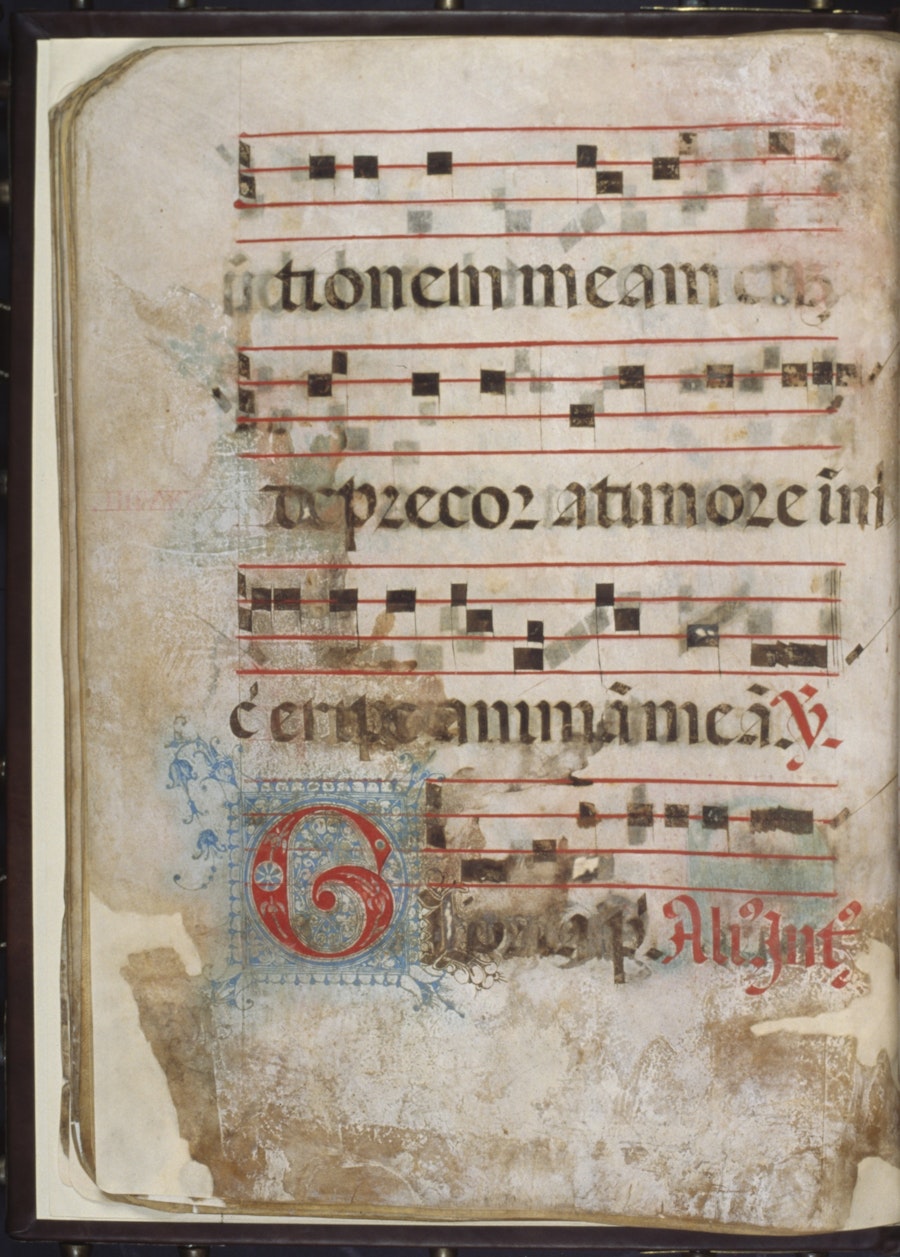 tionem meam cũ
deprecor a timore ini
c̃ eripe animã meã. ℣.
Gloria p̃. Ali⁹ Int